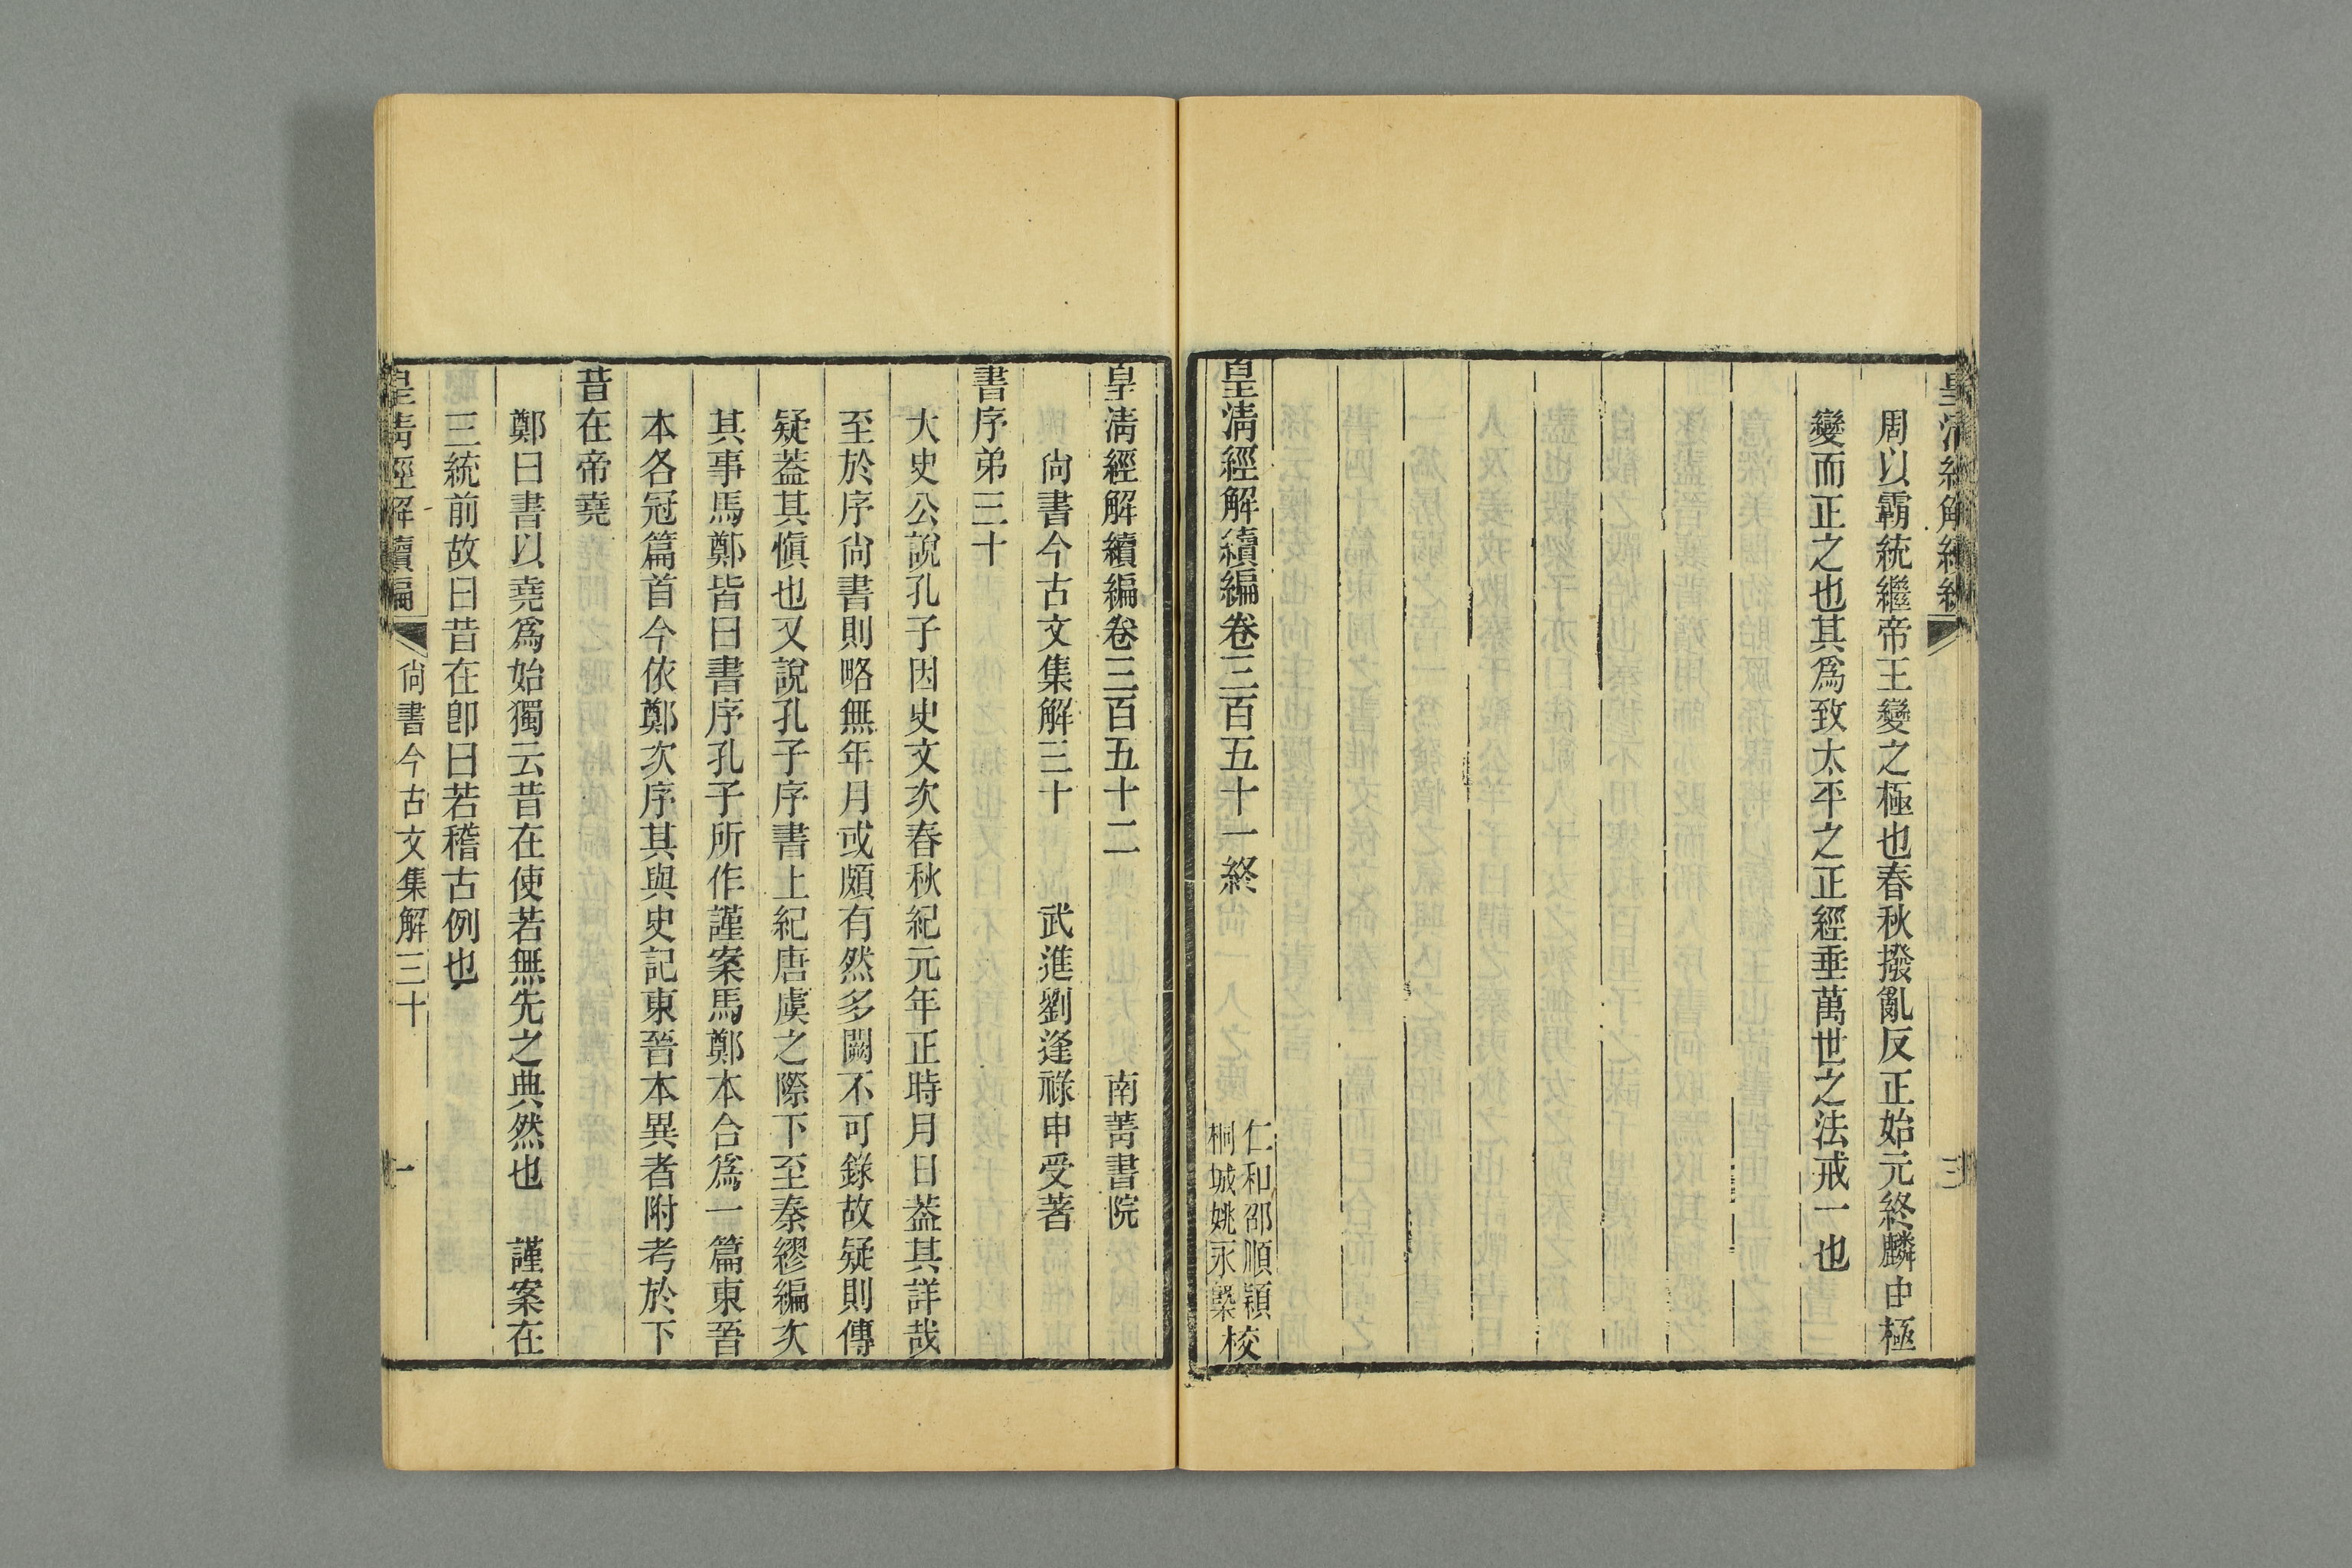 周以霸統繼帝王變之極也春秋撥亂反正始元終麟由極
變而正之也其爲致太平之正經垂萬世之法戒一也
皇淸經解續編卷三百五十一終
仁和邵順穎
桐城姚永㮣
校
皇淸經解續編卷三百五十二
南菁書院
尙書今古文集解三十
武進劉逢祿申受著
書序弟三十
大史公說孔子因史文次春秋紀元年正時月日蓋其詳哉
至於序尙書則略無年月或頗有然多闕不可錄故疑則傳
疑蓋其愼也又說孔子序書上紀唐虞之際下至秦繆編次
其事馬鄭皆曰書序孔子所作謹案馬鄭本合爲一篇東晉
本各冠篇首今依鄭次序其與史記東晉本異者附考於下
昔在帝堯
鄭曰書以堯爲始獨云昔在使若無先之典然也 謹案在
三統前故曰昔在卽曰若稽古例也
皇淸經解續編
尙書今古文集解三十
一